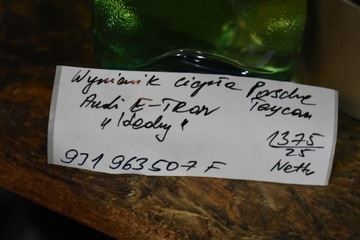 Wymiennik ciepła Porsche
Audi E-TRON Taycan
"Ideały"
1375/25
9J1 963 507 F Netto